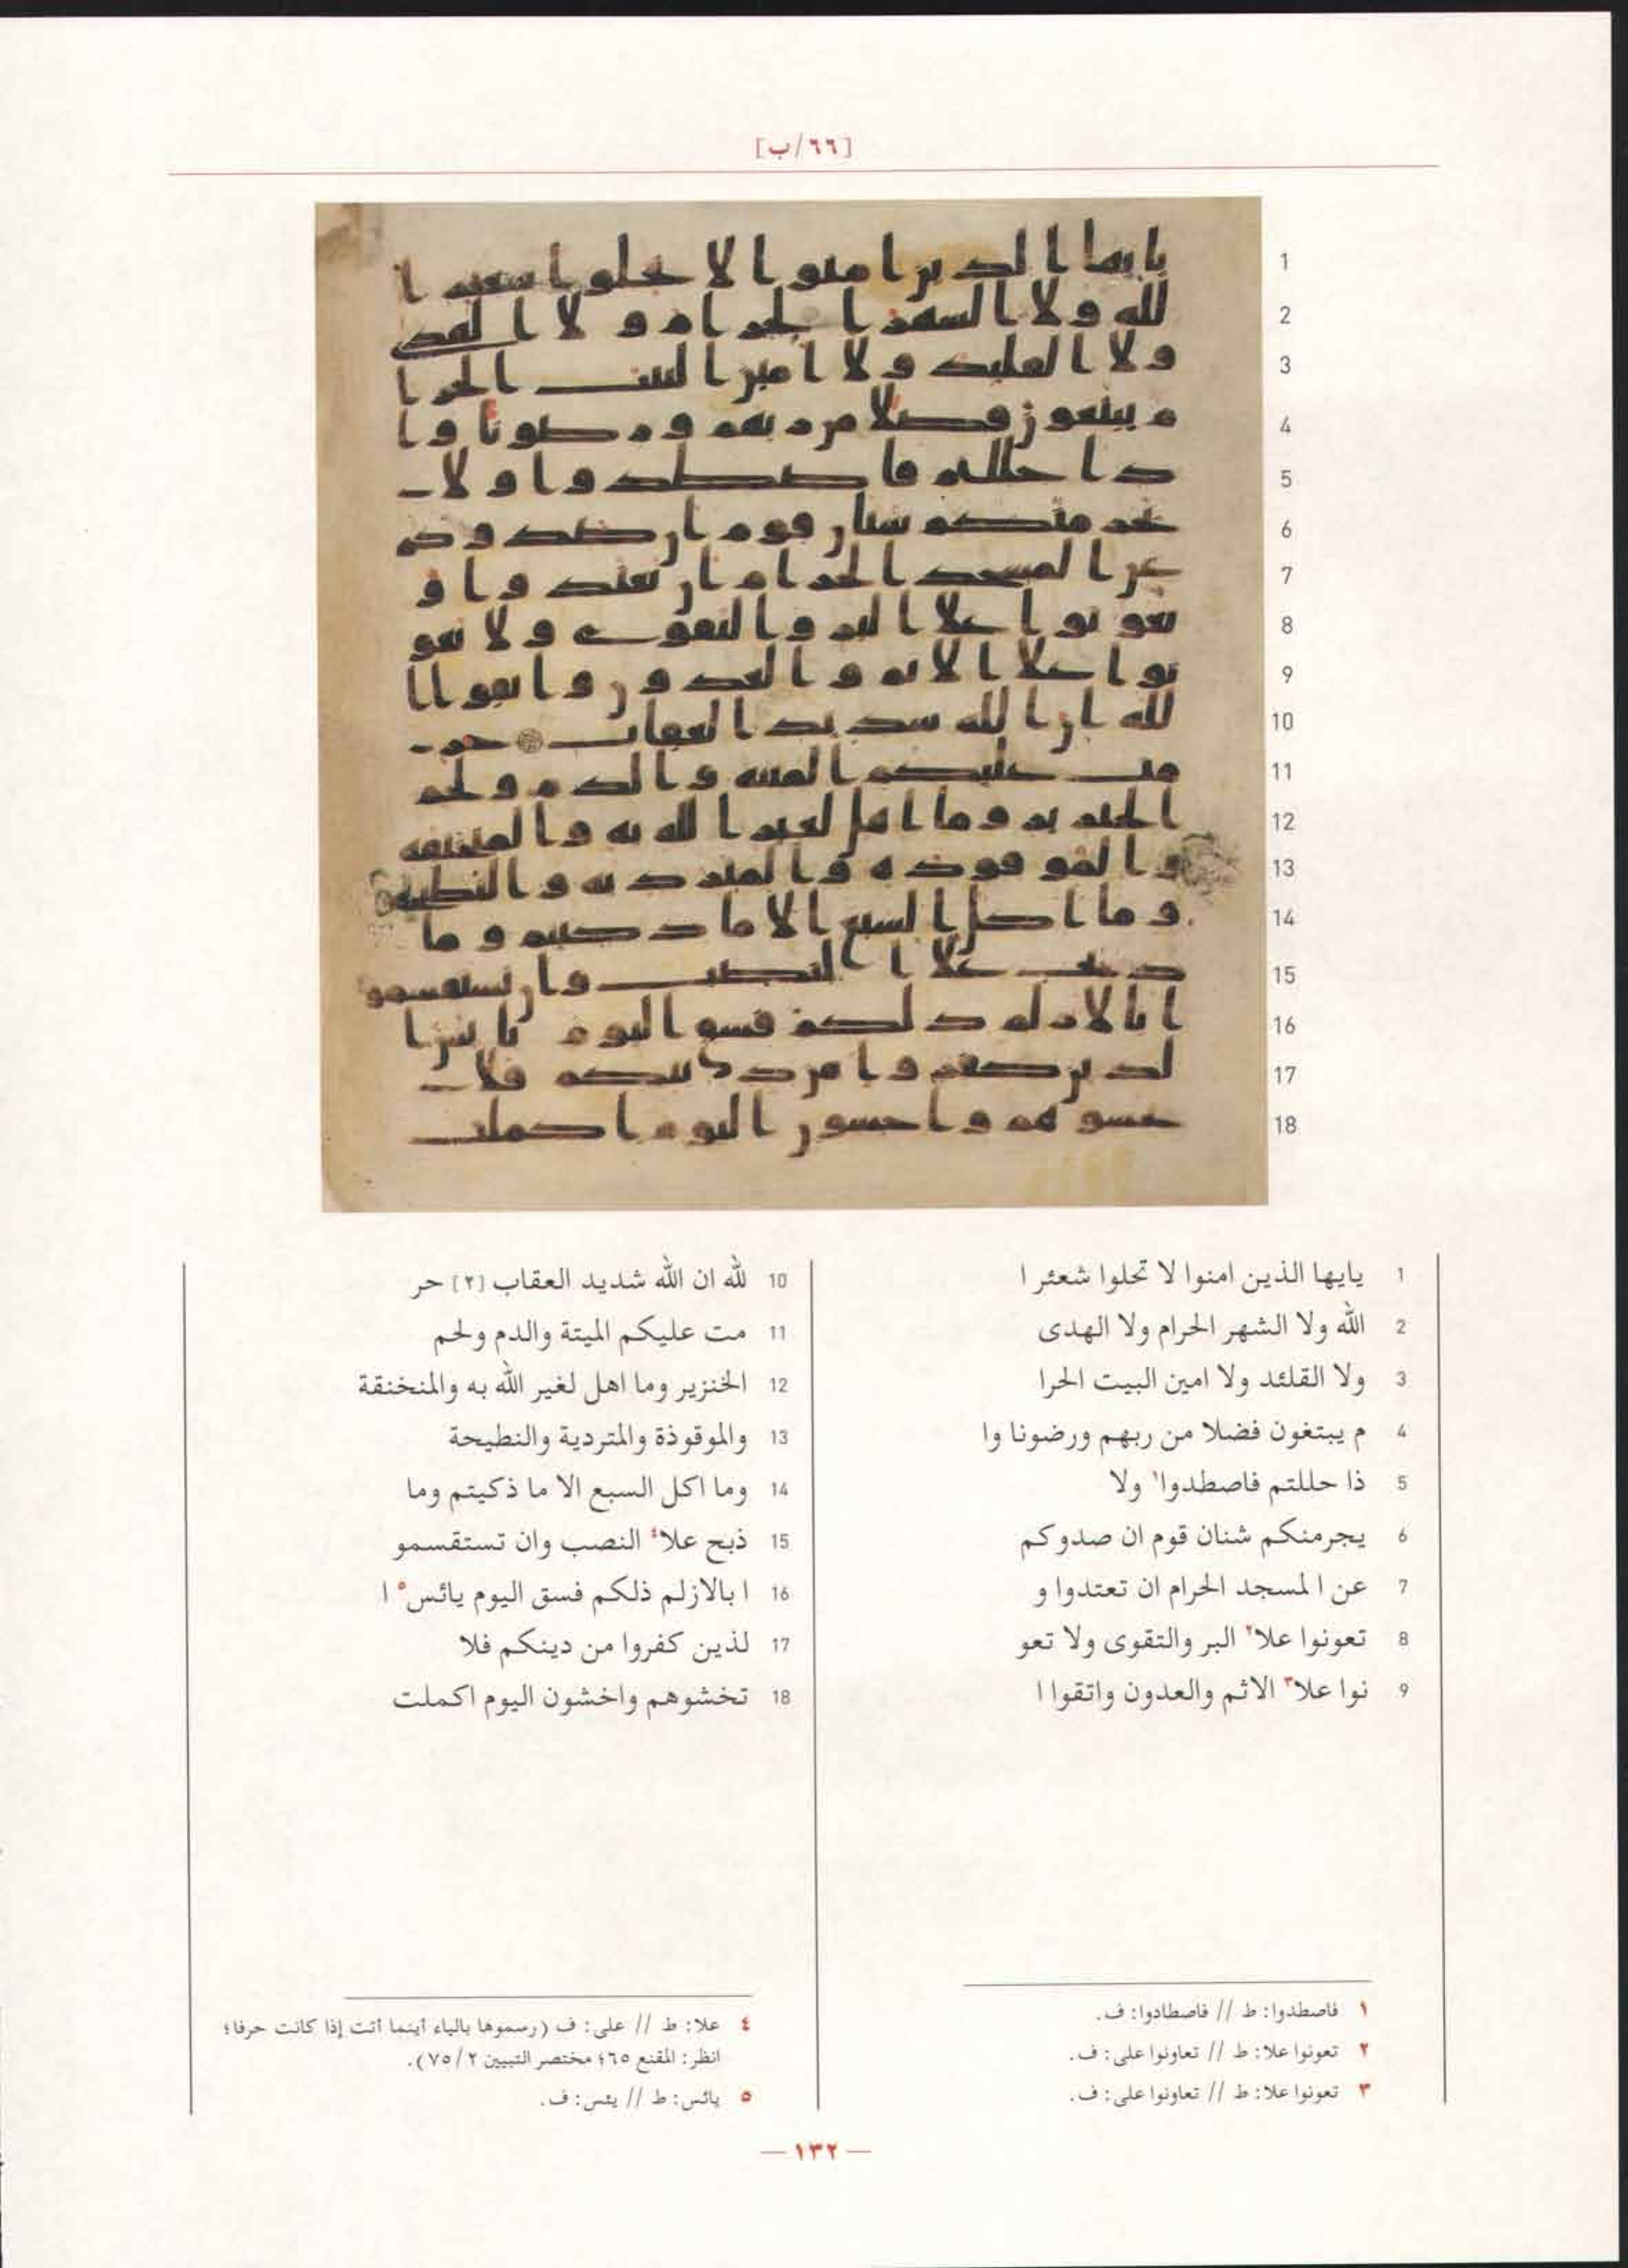 [٦٦/ب]
1 يايها الذين امنوا لا تحلوا شعئر ا
2 الله ولا الشهر الحرام ولا الهدى
3 ولا القلئد ولا امين البيت الحرا
4 م يبتغون فضلا من ربهم ورضونا وا
5 ذا حللتم فاصطدوا١ ولا
6 يجرمنكم شنان قوم ان صدوكم
7 عن المسجد الحرام ان تعتدوا و
8 تعونوا علا٢ البر والتقوى ولا تعو
9 نوا علا٣ الاثم والعدون واتقوا ا
10 لله ان الله شديد العقاب [٢] حر
11 مت عليكم الميتة والدم ولحم
12 الخنزير وما اهل لغير الله به والمنخنقة
13 والموقوذة والمتردية والنطيحة
14 وما اكل السبع الا ما ذكيتم وما
15 ذبح علا٤ النصب وان تستقسمو
16 ا بالازلم ذلكم فسق اليوم يائس٥ ا
17 لذين كفروا من دينكم فلا
18 تخشوهم واخشون اليوم اكملت
١ فاصطدوا: ط // فاصطادوا: ف.
٢ تعونوا علا: ط // تعاونوا على: ف.
٣ تعونوا علا: ط // تعاونوا على: ف.
٤ علا: ط // على: ف (رسموها بالياء أينما أتت إذا كانت حرفا؛
انظر: المقنع ٦٥؛ مختصر التبيين ٢/ ٧٥).
٥ يائس: ط // يئس: ف.
— ١٣٢ —